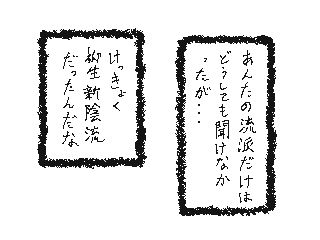 あんたの流派だけは
どうしても聞けなか
ったが・・・
けっきょく
柳生新陰流
だったんだな